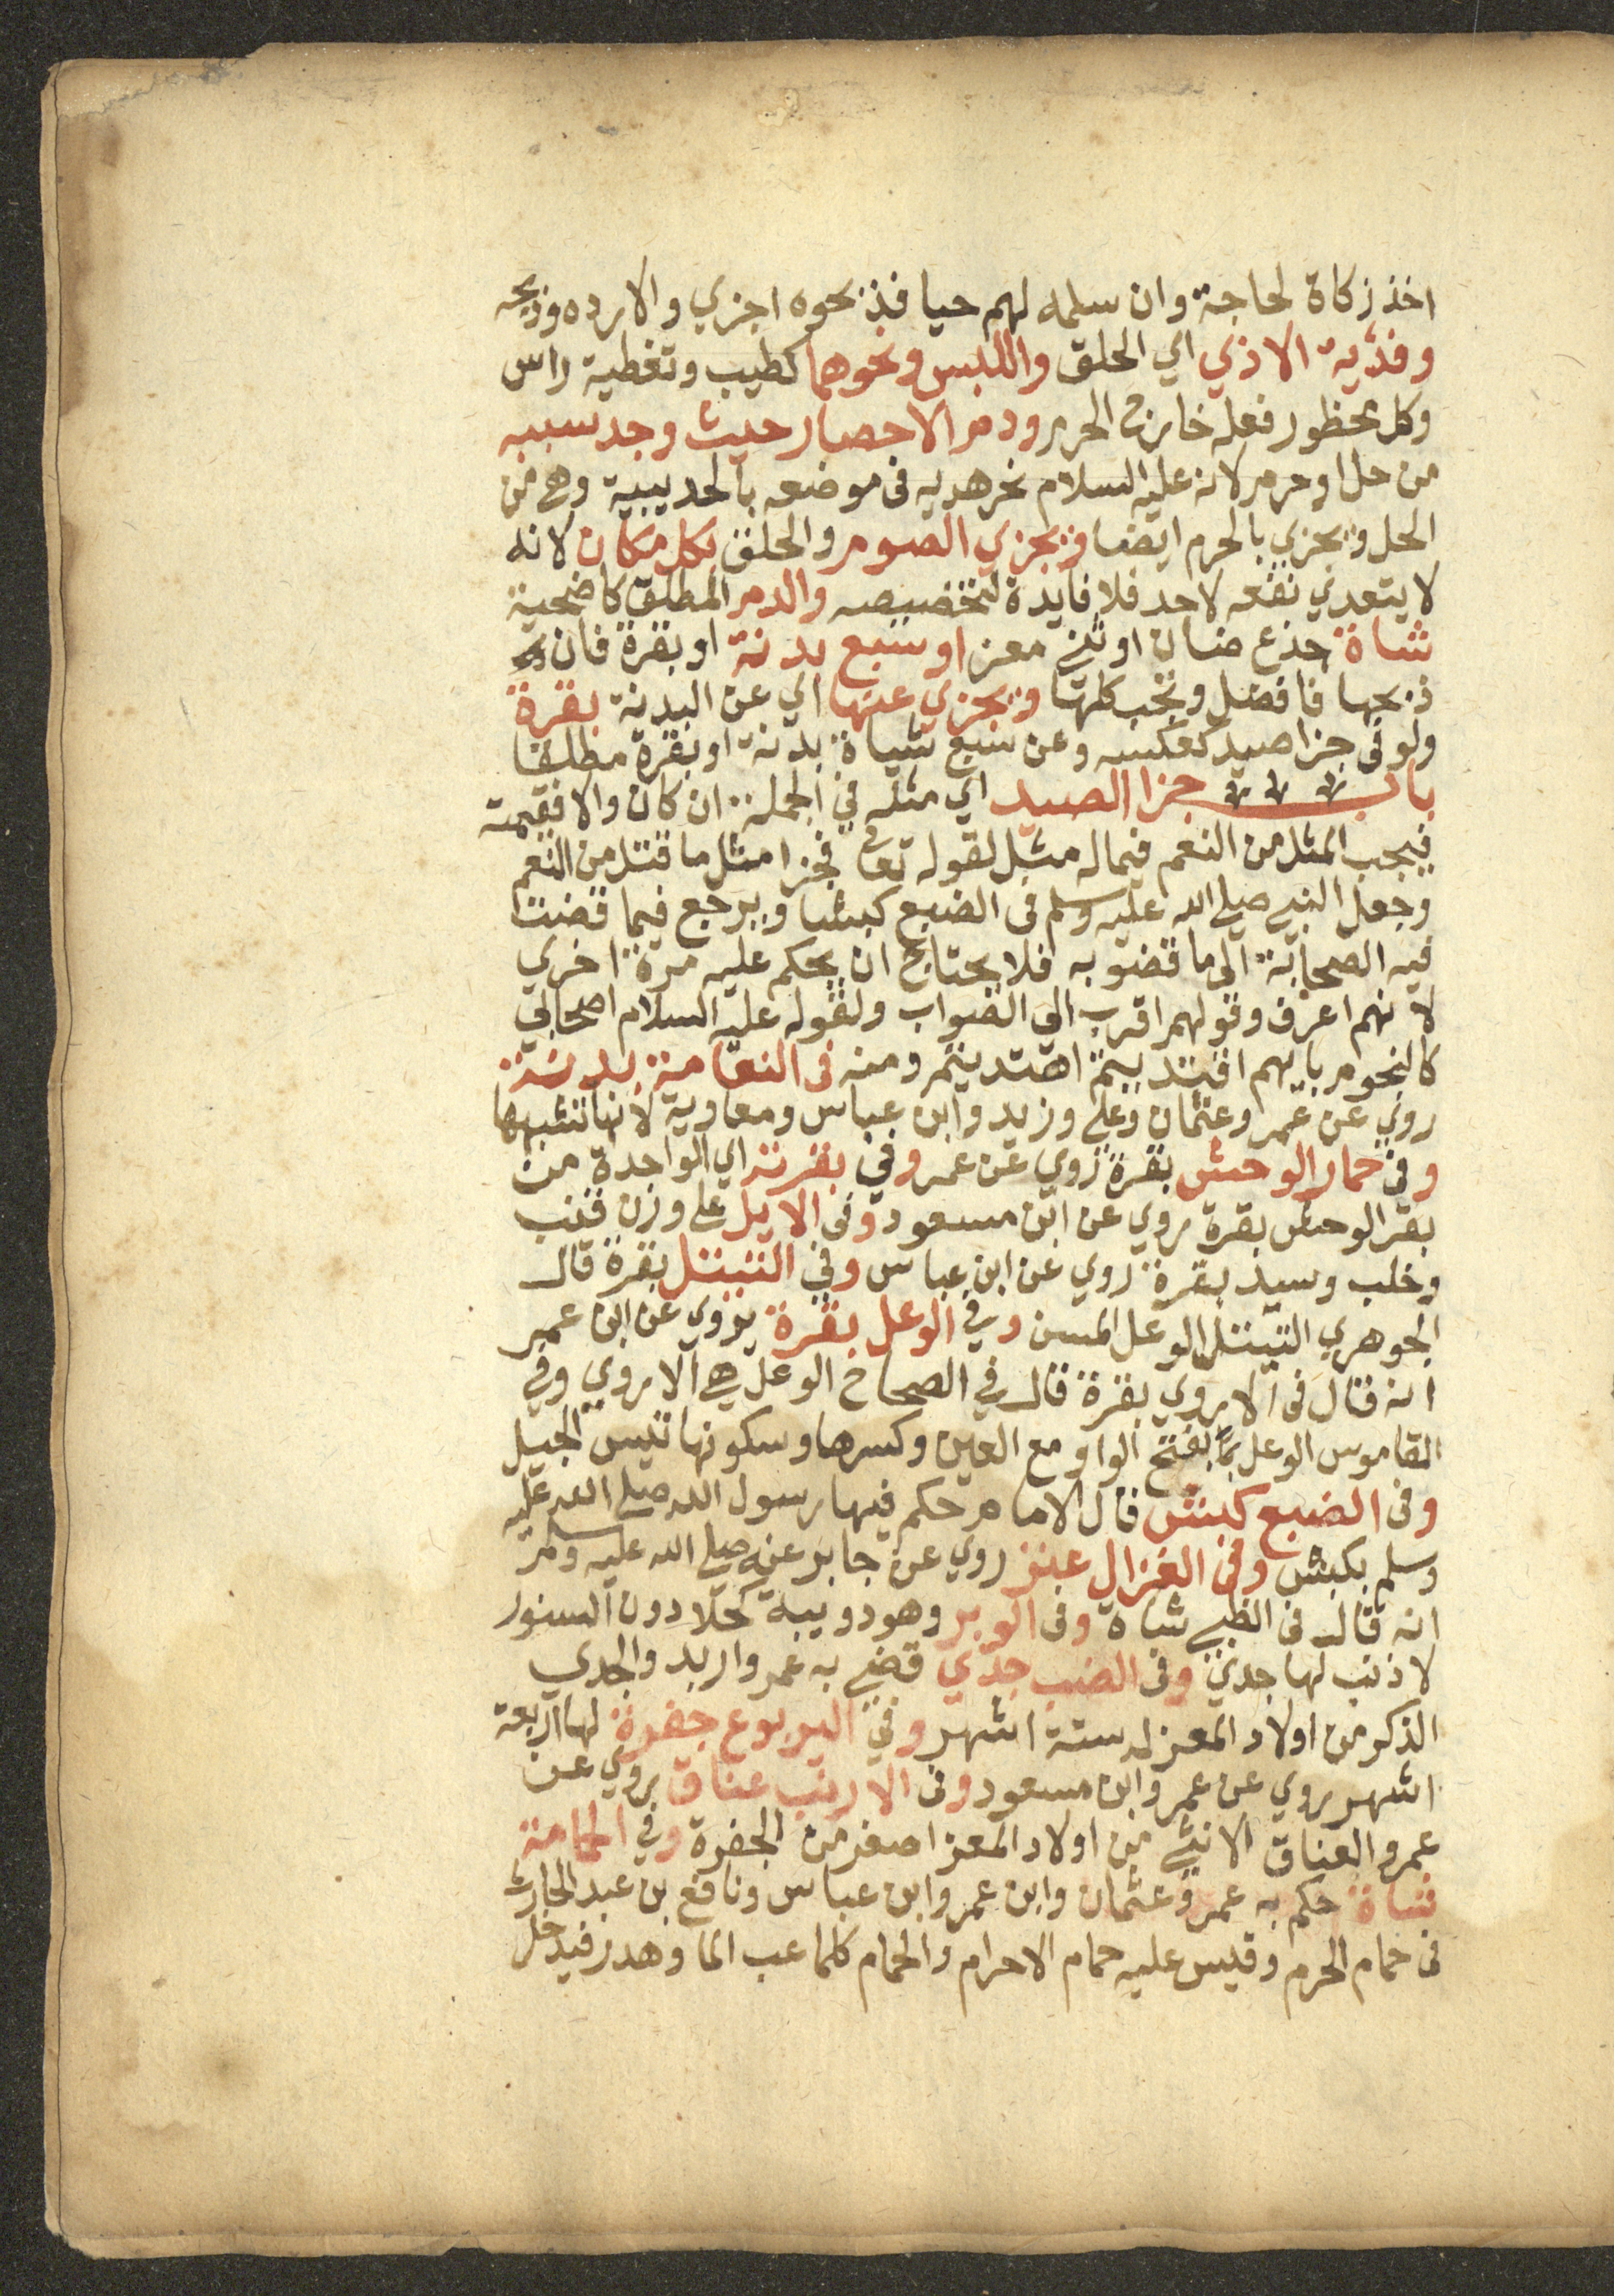 اخذ زكاة لحاجة وان سلمه لهم حيا فذبحوه اجزي والا رده وذبحه
وفدية الاذي اي الحلق واللبس ونحوهما كطيب وتغطية راس
وكل محظور فعله خارج الحرم ودم الاحصار حيث وجد سببه
من حل او حرم لانه عليه السلام نحر هديه في موضعه بالحديبية وهي من
الحل ويجزي بالحرم ايضا ويجزي الصوم والحلق بكل مكان لانه
لا يتعدي نفعه لاحد فلا فايدة لتخصيصه والدم المطلق كاضحية
شاة جذع ضان او ثني معز او سبع بدنة او بقرة فان
ذبحها فافضل وتجب كلها ويجزي عنها اي عن البدنة بقرة
ولو في جزا صيد كعكسه وعن سبع شياة بدنة او بقرة مطلقا
باب جزا الصيد اي مثله في الجملة ان كان والا فقيمته
فيجب المثل من النعم فيما له مثل لقوله تعالى فجزا مثل ما قتل من النعم
وجعل النبي صلي الله عليه وسلم في الضبع كبشا ويرجع فيما قضت
فيه الصحابة الى ما قضو به فلا يحتاج ان يحكم عليه مرة اخري
لانهم اعرف وقولهم اقرب الي الصواب ولقوله عليه السلام اصحابي
كالنجوم بايهم اقتديتم اهتديتم ومنه في النعامة بدنة
روي عن عمر وعثمان وعلي وزيد وابن عباس ومعاوية لانها تشبهها
وفي حمار الوحش بقرة روي عن عمر وفي بقرته اي الواحدة من
بقر الوحش بقرة روي عن ابن مسعود وفي الايل علي وزن قنب
وخلب وسيد بقرة روي عن ابن عباس وفي التيتل بقرة قال
الجوهري التيتل الوعل المسن وفي الوعل بقرة يروي عن ابن عمر
انه قال في الاروي بقرة قال في الصحاح الوعل هي الاروي وفي
القاموس الوعل بفتح الواو مع العين وكسرها وسكونها تيس الجبل
وفي الضبع كبش قال الامام حكم فيها رسول الله صلي الله عليه
وسلم بكبش وفي الغزال عنز روي عن جابر عنه صلي الله عليه وسلم
انه قال في الظبي شاة وفي الوبر وهو دويبة كحلا دون السنور
لا ذنب لها جدي وفي الضب جدي قضي به عمر واربد والجدي
الذكر من اولاد المعز له ستة اشهر وفي اليربوع جفرة لها اربعة
اشهر روي عن عمر وابن مسعود وفي الارنب عناق يروي عن
عمر والعناق الانثي من اولاد المعز اصغر من الجفرة وفي الحمامة
شاة حكم به عمر وعثمان وابن عمر وابن عباس ونافع بن عبد الحارث
في حمام الحرم وقيس عليه حمام الاحرام والحمام كلما عب الما وهدر فيدخل